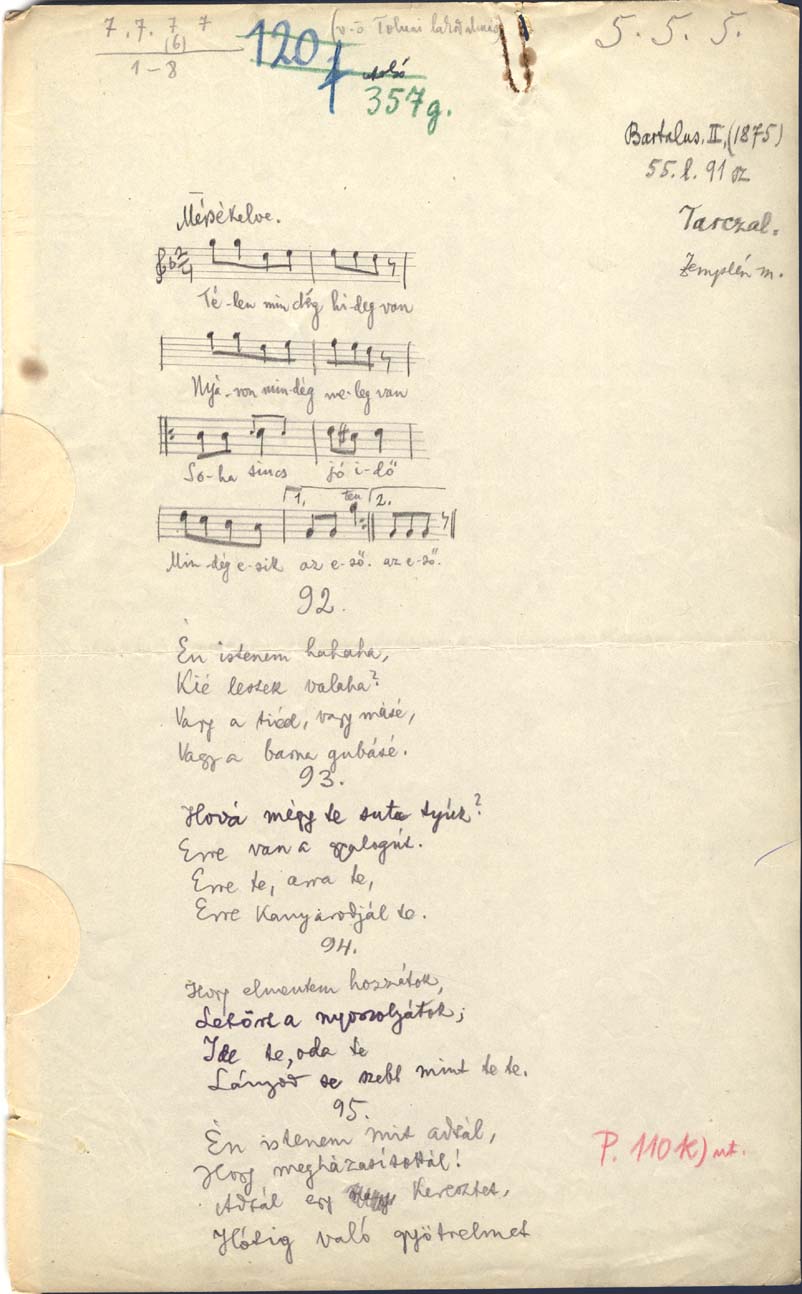 7. 7. 7 7
(6)
1-8
120
(v.ö Tolnai
5. 5. 5.
utolsó
357g.
Bartalus. II, (1875)
55. l. 91 sz
Tarczal.
Zemplén m.
Mérsékelve.
2
4
Té-len min dég hi-deg van
Nyá-ron min-dég me-leg van
So-ha sincs jó i-dő
1. ten 2.
Min-dég e-sik az e-ső. az e-ső.
92.
Én istenem hahaha,
Kié leszek valaha?
Vagy a tiéd, vagy másé,
Vagy a barna gubásé.
93.
Hová mégy te suta tyúk?
Erre van a gyalogút.
Erre te, arra te,
Erre kanyarodjál te.
94.
Hogy elmentem hozzátok,
Letört a nyoszolyátok;
Ide te, oda te
Lányod se szebb mint te te.
95.
Én istenem mit adtál,
Hogy megházasítottál!
Adtál egy keresztet,
Hótig való gyötrelmet
P. 110k) nt.